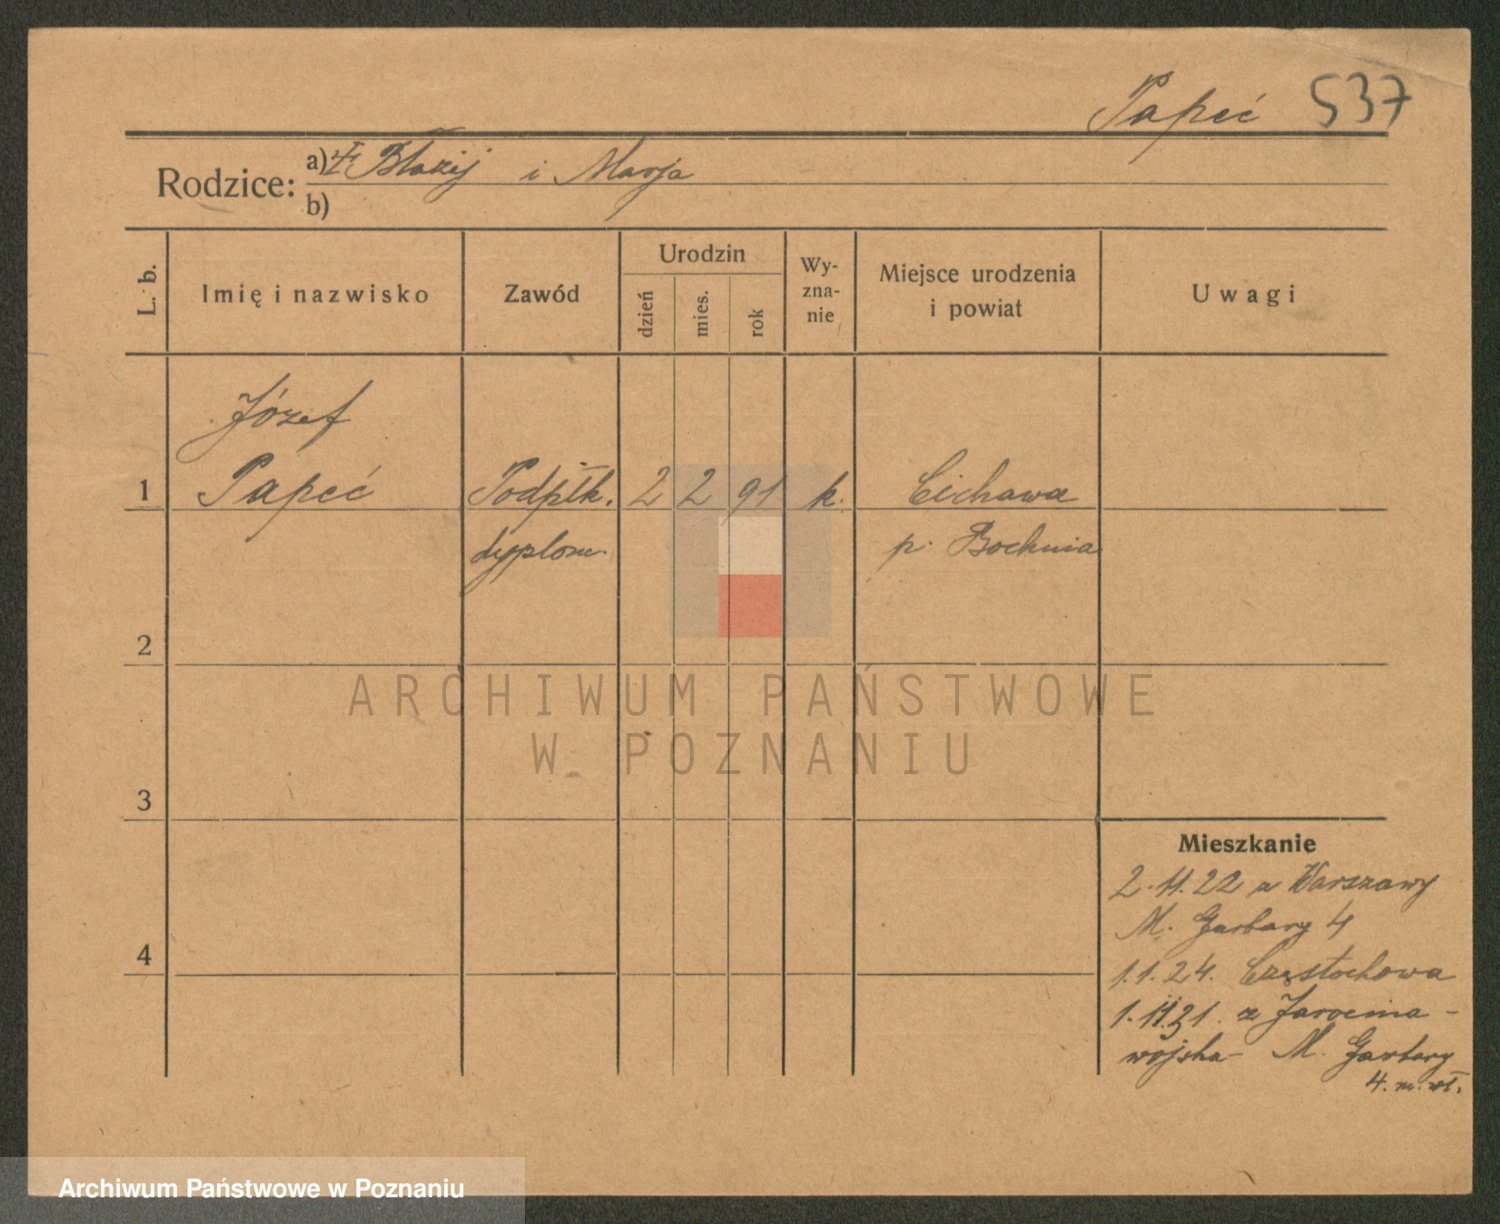 Papeć 537
Rodzice: a) Błażij i Marja
b)
L. b.
Imię i nazwisko
Zawód
Urodzin
dzień
mies.
rok
Wy-
zna-
nie
Miejsce urodzenia
i powiat
Uwagi
Józef
1 Papeć Podpłk. 2 2 91 k. Cichawa
dyplom. p. Bochnia
2
ARCHIWUM PAŃSTWOWE
W POZNANIU
3
Mieszkanie
2.11.22 z Warszawy
M. Garbary 4
4
1.1.24. Częstochowa
1.11.31. z Jarocina -
wojska - M. Garbary
4. m. wł.
Archiwum Państwowe w Poznaniu